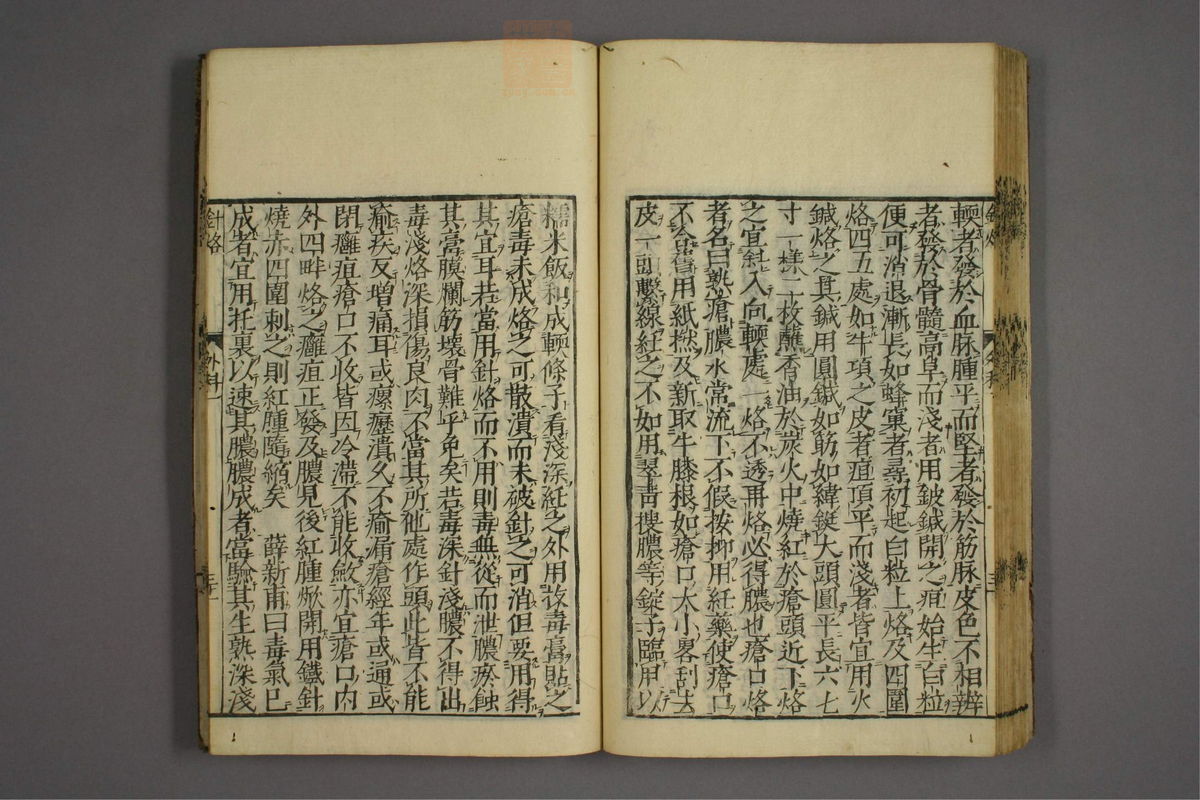 輭者發於血脉腫平而堅者發於筋脉皮色不相辨
者發於骨髓高阜而淺者用鈹鍼開之疽始生白粒
便可消退漸長如蜂窠者尋初起白粒上烙及四圍
烙四五處如牛項之皮者疽頂平而淺者皆宜用火
鍼烙之其鍼用圓鍼如筯如緯鋌大頭圓平長六七
寸一樣二枚蘸香油於炭火中燒紅於瘡頭近下烙
之宜斜入向輭處一烙不透再烙必得膿也瘡口烙
者名曰熟瘡膿水常流下不假按抑用紝藥使瘡口
不合舊用紙撚及新取牛膝根如瘡口大小畧刮去
皮一頭繫線紝之不如用翠青搜膿等錠子臨用以
糯米飯和成輭條子看淺深紝之外用敗毒膏貼之
瘡毒未成烙之可散潰而未破針之可消但要用得
其宜耳若當用針烙而不用則毒無從而泄膿瘀蝕
其膏膜爛筋壞骨難乎免矣若毒深針淺膿不得出
毒淺烙深損傷良肉不當其所他處作頭此皆不能
瘉疾反增痛耳或瘰癧潰久不瘉㾓瘡經年或通或
閉癰疽瘡口不收皆因冷滯不能收斂亦宜瘡口内
外四畔烙之癰疽正發及膿見後紅腫焮開用鐵針
燒赤四圍刺之則紅腫隨縮矣 薛新甫曰毒氣已
成者宜用托裏以速其膿膿成者當驗其生熟深淺
針烙
外科